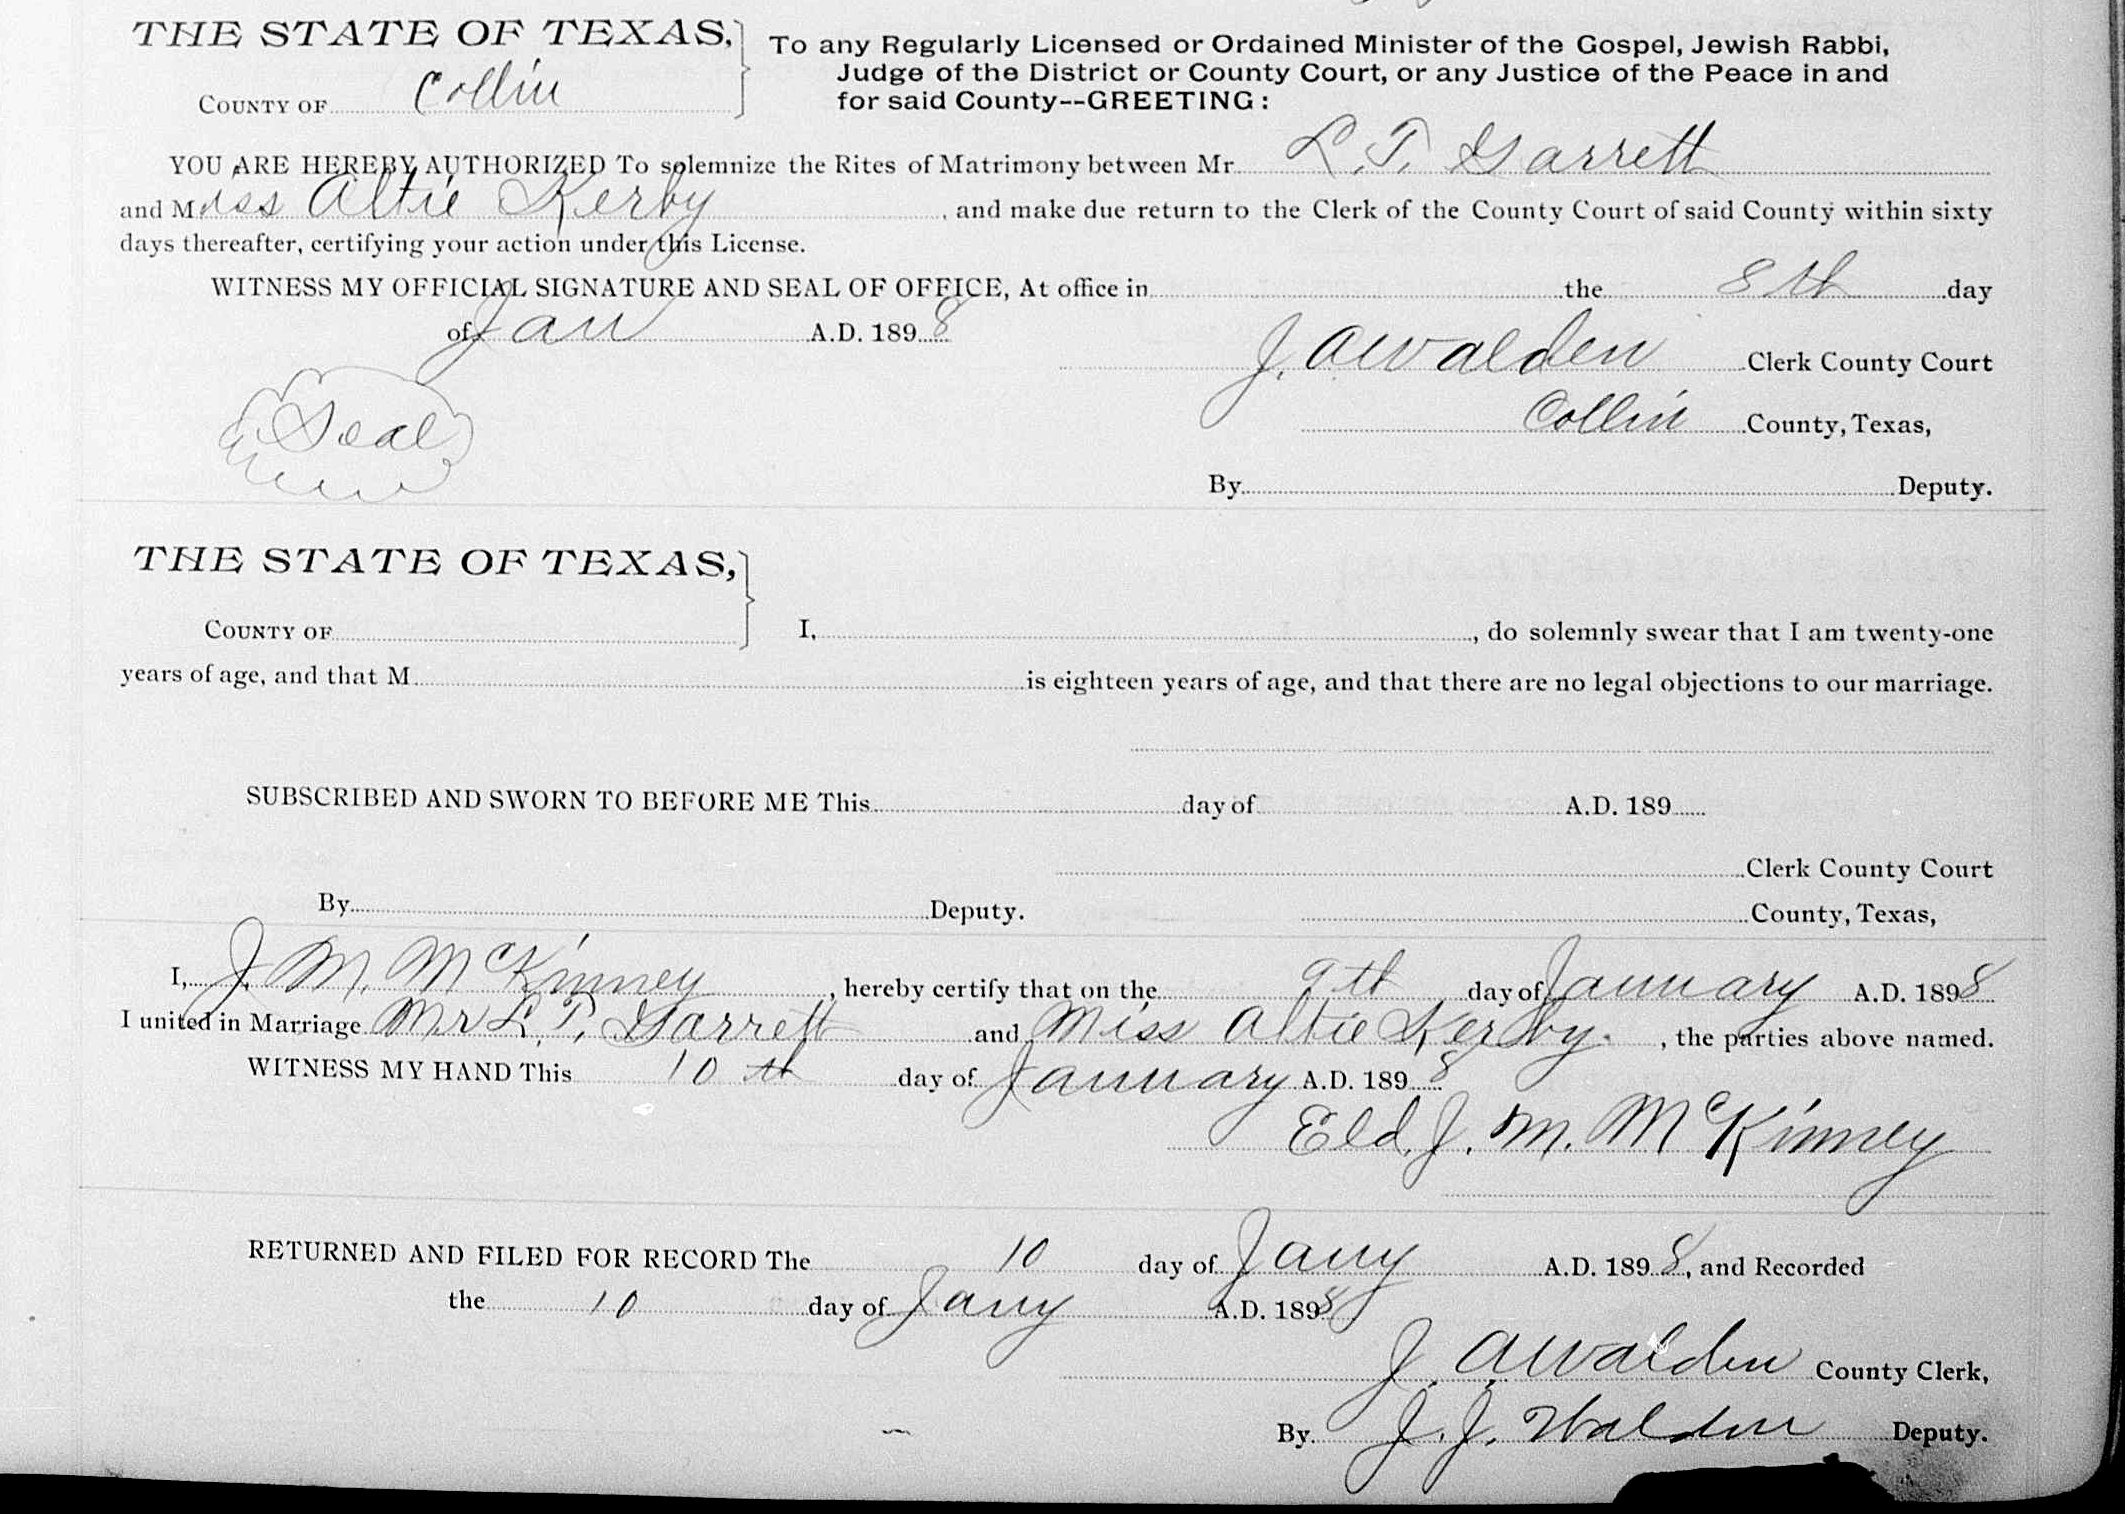 THE STATE OF TEXAS,
County of Collin
To any Regularly Licensed or Ordained Minister of the Gospel, Jewish Rabbi,
Judge of the District or County Court, or any Justice of the Peace in and
for said County--GREETING:
YOU ARE HEREBY AUTHORIZED To solemnize the Rites of Matrimony between Mr L. T. Garrett
and Miss Altie Kerby, and make due return to the Clerk of the County Court of said County within sixty
days thereafter, certifying your action under this License.
WITNESS MY OFFICIAL SIGNATURE AND SEAL OF OFFICE, At office in the 8th day
of Jan A.D. 1898
J. A Walden Clerk County Court
Seal
Collin County, Texas,
By Deputy.
THE STATE OF TEXAS,
County of I, , do solemnly swear that I am twenty-one
years of age, and that M is eighteen years of age, and that there are no legal objections to our marriage.
SUBSCRIBED AND SWORN TO BEFORE ME This day of A.D. 189
Clerk County Court
By Deputy. County, Texas,
I, J. M. McKinney, hereby certify that on the 9th day of January A.D. 1898
I united in Marriage Mr L. T. Garrett and Miss Altie Kerby, the parties above named.
WITNESS MY HAND This 10th day of January A.D. 1898
Eld. J. M. McKinney
RETURNED AND FILED FOR RECORD The 10 day of Jany A.D. 1898, and Recorded
the 10 day of Jany A.D. 1898
J. A Walden County Clerk,
By J. J. Walden Deputy.